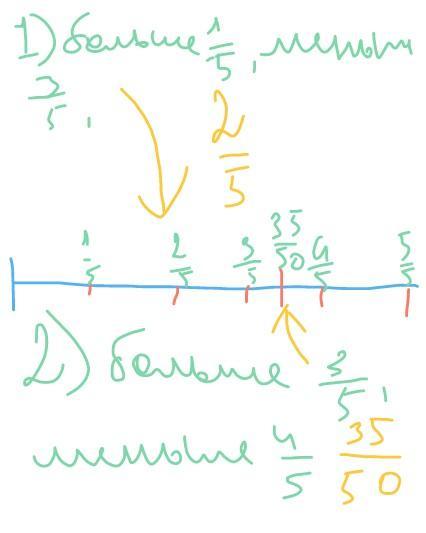 1) больше 1/5, меньше
3/5,
2/5
1/5 2/5 3/5 35/50 4/5 5/5
2) больше 3/5,
меньше 4/5 35/50